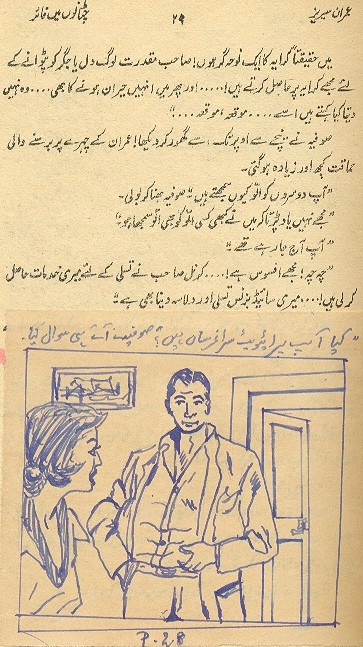 عمران سیریز ۲۹ چٹانوں میں فائر
میں حقیقتاً کرایہ کا ایک نوحہ گر ہوں! صاحب مقدرت لوگ دل یا جگر کو پٹوانے کے
لئے مجھے کرایہ پر حاصل کرتے ہیں!.....اور پھر میں انہیں حیران ہونے کا بھی....وہ نہیں
دیتا کیا کہتے ہیں اسے.....موقعہ، موقعہ...."
صوفیہ نے نیچے سے اوپر تک اسے گھور کر دیکھا! عمران کے چہرے پر برسنے والی
حماقت کچھ اور زیادہ ہو گئی۔
"آپ دوسروں کو الّو کیوں سمجھتے ہیں" صوفیہ بھنا کر بولی۔
"مجھے نہیں یاد پڑتا کہ میں نے کبھی کسی الّو کو بھی الّو سمجھا ہو"
"آپ آج جا رہے تھے"
"چہ چہ! مجھے افسوس ہے!....کرنل صاحب نے تسلی کے لئے میری خدمات حاصل
کر لی ہیں!....میری سائیڈ بزنس تسلی اور دلاسہ دینا بھی ہے"
"کیا آپ پرائیویٹ سراغرساں ہیں؟" صوفیہ نے آتے ہی سوال کیا۔
P. 28